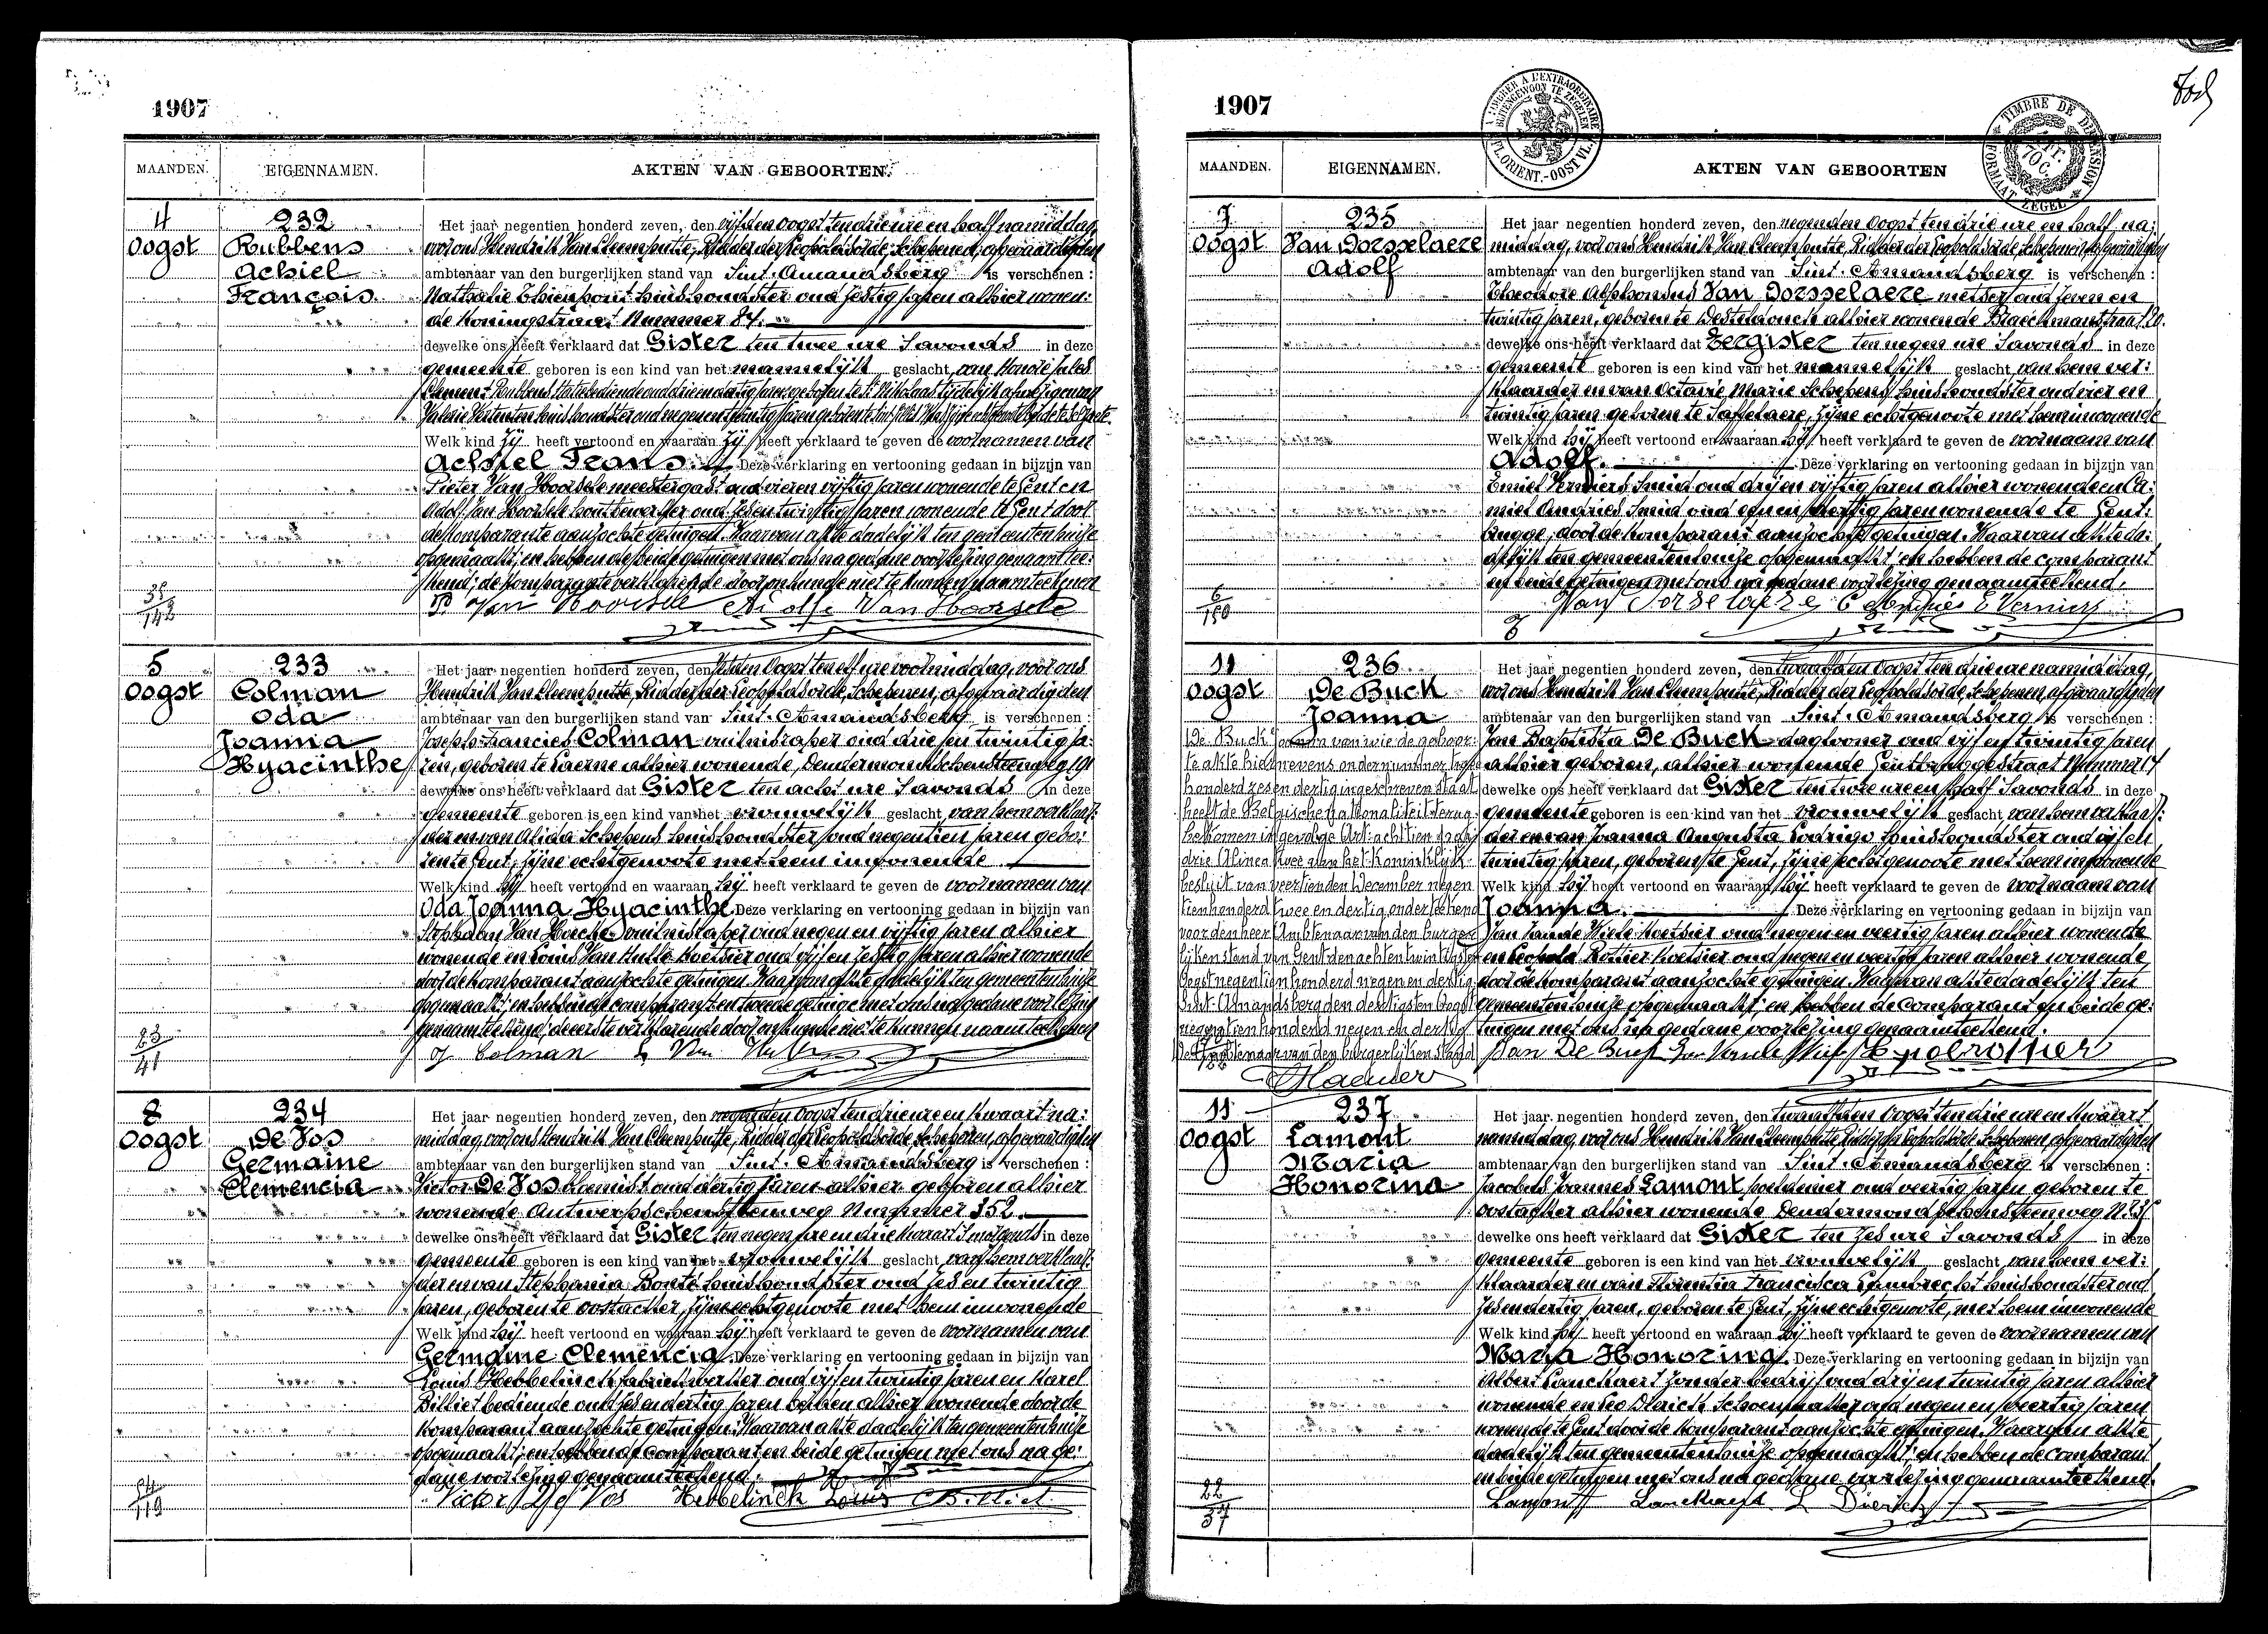 1907
MAANDEN. EIGENNAMEN. AKTEN VAN GEBOORTEN.
4 Oogst
232
Rubbens
Achiel
François
Het jaar negentien honderd zeven, den vijfden Oogst ten drie ure en half namiddag,
voor ons Hendrik Van Cleemputte, Ridder der Leopoldsorde, Schepenen, afgevaardigden
ambtenaar van den burgerlijken stand van Sint-Amandsberg is verschenen :
Nathalie Thienpont huishoudster oud zestig jaren alhier wonen:
de Koningstraat Nummer 84.
dewelke ons heeft verklaard dat Gister ten twee ure Savonds in deze
gemeente geboren is een kind van het mannelijk geslacht, van Honoré Jules
Clement Rubbens
Welk kind zij heeft vertoond en waaraan zij heeft verklaard te geven de voornamen van
Achiel Frans. Deze verklaring en vertooning gedaan in bijzijn van
Pieter Van Hoorde meestergast oud vier en vijftig jaren wonende te Gent en
Adolf Van Hoorde oud zes en twintig jaren wonende te Gent door
de komparante aanzochte getuigen. Waarvan akte dadelijk ten gemeentenhuize
opgemaakt; en hebben de beide getuigen met ons na gedane voorlezing genaamtee:
kend; de komparante verklarende door onkunde niet te kunnen naamteekenen
35
142
5 Oogst
233
Colman
Oda
Joanna
Hyacinthe
Het jaar negentien honderd zeven, den zesden Oogst ten elf ure voormiddag, voor ons
Hendrik Van Cleemputte, Ridder der Leopoldsorde, Schepenen, afgevaardigden
ambtenaar van den burgerlijken stand van Sint-Amandsberg is verschenen :
Joseph Francies Colman oud drie en twintig ja:
ren, geboren te Laerne alhier wonende, Dendermondschensteenweg 191
dewelke ons heeft verklaard dat Gister ten acht ure Savonds in deze
gemeente geboren is een kind van het vrouwelijk geslacht van hem verklaar:
der en van Alida Schepens huishoudster oud negentien jaren gebo:
ren te Gent, zijne echtgenoote met hem inwonende
Welk kind hij heeft vertoond en waaraan hij heeft verklaard te geven de voornamen van
Oda Joanna Hyacinthe. Deze verklaring en vertooning gedaan in bijzijn van
oud negen en vijftig jaren alhier
wonende en Louis Van Hulle oud vijf en zestig jaren alhier wonende
door de komparant aanzochte getuigen. Waarvan akte dadelijk ten gemeentenhuize
opgemaakt; en hebben de comparant en tweede getuige met ons na gedane voorlezing
genaamteekend; de eerste verklarende door onkunde niet te kunnen naamteekenen
J Colman
23
41
8 Oogst
234
De Vos
Germaine
Clemencia
Het jaar negentien honderd zeven, den negenden Oogst ten drie ure en kwaart na:
middag, voor ons Hendrik Van Cleemputte, Ridder der Leopoldsorde, Schepenen, afgevaardigden
ambtenaar van den burgerlijken stand van Sint-Amandsberg is verschenen :
Victor De Vos oud dertig jaren alhier geboren alhier
wonende Antwerpschensteenweg Nummer 352.
dewelke ons heeft verklaard dat Gister ten negen ure en drie kwaart Smorgends in deze
gemeente geboren is een kind van het vrouwelijk geslacht van hem verklaar:
der en van Stephania Bonté huishoudster oud zes en twintig
jaren, geboren te Oostacker, zijne echtgenoote met hem inwonende
Welk kind hij heeft vertoond en waaraan hij heeft verklaard te geven de voornamen van
Germaine Clemencia. Deze verklaring en vertooning gedaan in bijzijn van
Louis Hebbelinck fabriekwerker oud vijf en twintig jaren en Karel
Billiet bediende oud zes en dertig jaren beiden alhier wonende door de
komparant aanzochte getuigen. Waarvan akte dadelijk ten gemeentenhuize
opgemaakt; en hebben de comparant en beide getuigen met ons na ge:
dane voorlezing genaamteekend.
Victor De Vos Hebbelinck Louis C Billiet
119
1907
MAANDEN. EIGENNAMEN. AKTEN VAN GEBOORTEN
TIMBRE DE DIMENSION
FORMAAT ZEGEL
7 Oogst
235
Van Dorsselaere
Adolf
Het jaar negentien honderd zeven, den negenden Oogst ten drie ure en half na:
middag, voor ons Hendrik Van Cleemputte, Ridder der Leopoldsorde, Schepenen, afgevaardigden
ambtenaar van den burgerlijken stand van Sint-Amandsberg is verschenen :
Theodore Alphonsus Van Dorsselaere metser oud zeven en
twintig jaren, geboren te Desteldonck alhier wonende Braeckmanstraat 20.
dewelke ons heeft verklaard dat Eergister ten negen ure Savonds in deze
gemeente geboren is een kind van het mannelijk geslacht, van hem ver:
klaarder en van Octavie Marie Schepens huishoudster oud vier en
twintig jaren, geboren te Saffelaere, zijne echtgenoote met hem inwonende
Welk kind hij heeft vertoond en waaraan hij heeft verklaard te geven de voornaam van
Adolf. Deze verklaring en vertooning gedaan in bijzijn van
Emiel Verniers Smid oud drij en vijftig jaren alhier wonende en Ca:
miel Andries Smid oud een en dertig jaren wonende te Gent:
brugge, door de komparant aanzochte getuigen. Waarvan akte da:
delijk ten gemeentenhuize opgemaakt; en hebben de comparant
en beide getuigen met ons na gedane voorlezing genaamteekend.
Van Dorselaere C Andries E Verniers
6
150
11 Oogst
236
De Buck
Joanna
De Buck Joanna van wie de geboor:
te akte hier nevens onder nummer twee
honderd zes en dertig ingeschreven staat
heeft de Belgische nationaliteit terug
bekomen in gevolge Art: achttien
drie Alinea twee van het Koninklijk
besluit van veertienden December negen
tienhonderd twee en dertig onderteekend
voor den heer Ambtenaar van den burger
lijken stand van Gent den acht en twintigste
Oogst negentien honderd negen en dertig
Sint-Amandsberg den dertigsten Oogst
negentien honderd negen en dertig
De Ambtenaar van den burgerlijken stand
Het jaar negentien honderd zeven, den twaalfden Oogst ten drie ure namiddag,
voor ons Hendrik Van Cleemputte, Ridder der Leopoldsorde, Schepenen, afgevaardigden
ambtenaar van den burgerlijken stand van Sint-Amandsberg is verschenen :
Jan Baptista De Buck daglooner oud vijf en twintig jaren
alhier geboren, alhier wonende Gentbruggestraat Nummer 17
dewelke ons heeft verklaard dat Gister ten twee ure en half Savonds in deze
gemeente geboren is een kind van het vrouwelijk geslacht van hem verklaar:
der en van Joanna Augusta Rodrigo huishoudster oud vijf en
twintig jaren, geboren te Gent, zijne echtgenoote met hem inwonende
Welk kind hij heeft vertoond en waaraan hij heeft verklaard te geven de voornaam van
Joanna. Deze verklaring en vertooning gedaan in bijzijn van
Jan Van de Wiele Koetsier oud negen en veertig jaren alhier wonende
en Leopold Rottier Koetsier oud negen en veertig jaren alhier wonende,
door de komparant aanzochte getuigen. Waarvan akte dadelijk ten
gemeentenhuize opgemaakt; en hebben de comparant en beide ge:
tuigen met ons na gedane voorlezing genaamteekend.
Jan De Buck
11 Oogst
237
Lamont
Maria
Honorina
Het jaar negentien honderd zeven, den twaalfden Oogst ten drie ure en kwaart
namiddag, voor ons Hendrik Van Cleemputte Ridder der Leopoldsorde Schepenen, afgevaardigden
ambtenaar van den burgerlijken stand van Sint-Amandsberg is verschenen :
Jacobus Joannes Lamont oud veertig jaren geboren te
Oostacker alhier wonende Dendermondschensteenweg
dewelke ons heeft verklaard dat Gister ten zes ure Savonds in deze
gemeente geboren is een kind van het vrouwelijk geslacht van hem ver:
klaarder en van Francisca Lambrecht huishoudster oud
zes en dertig jaren, geboren te Gent, zijne echtgenoote, met hem inwonende
Welk kind hij heeft vertoond en waaraan hij heeft verklaard te geven de voornamen van
Maria Honorina. Deze verklaring en vertooning gedaan in bijzijn van
Albert Lanckhaert zonder bedrijf oud drij en twintig jaren alhier
wonende en Leo Dierick Schoenmaker oud negen en veertig jaren
wonende te Gent door de komparant aanzochte getuigen. Waarvan akte
dadelijk ten gemeentenhuize opgemaakt; en hebben de comparant
en beide getuigen met ons na gedane voorlezing genaamteekend.
Lamont Lanckhaert L Dierick
22
37